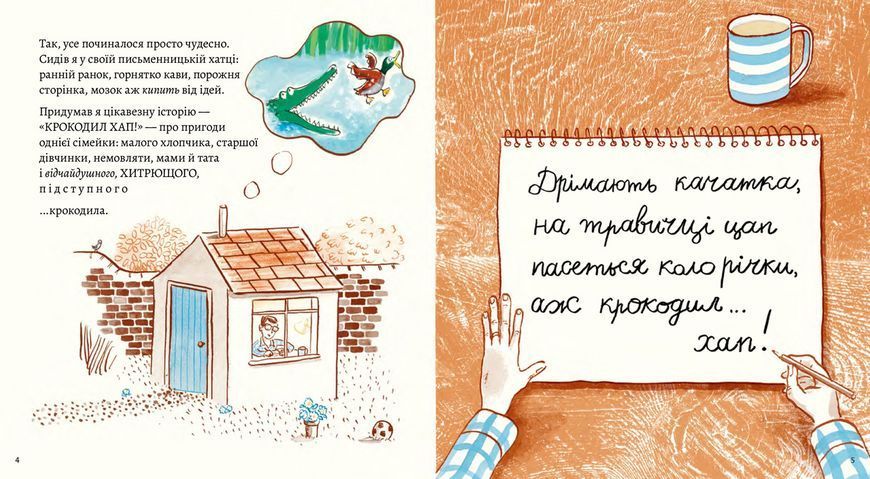 Так, усе починалося просто чудесно.
Сидів я у своїй письменницькій хатці:
ранній ранок, горнятко кави, порожня
сторінка, мозок аж кипить від ідей.
Придумав я цікавезну історію —
«КРОКОДИЛ ХАП!» — про пригоди
однієї сімейки: малого хлопчика, старшої
дівчинки, немовляти, мами й тата
і відчайдушного, ХИТРЮЩОГО,
підступного
...крокодила.
4
Дрімають качатка,
на травичці цап
пасеться коло річки,
аж крокодил...
хап!
5